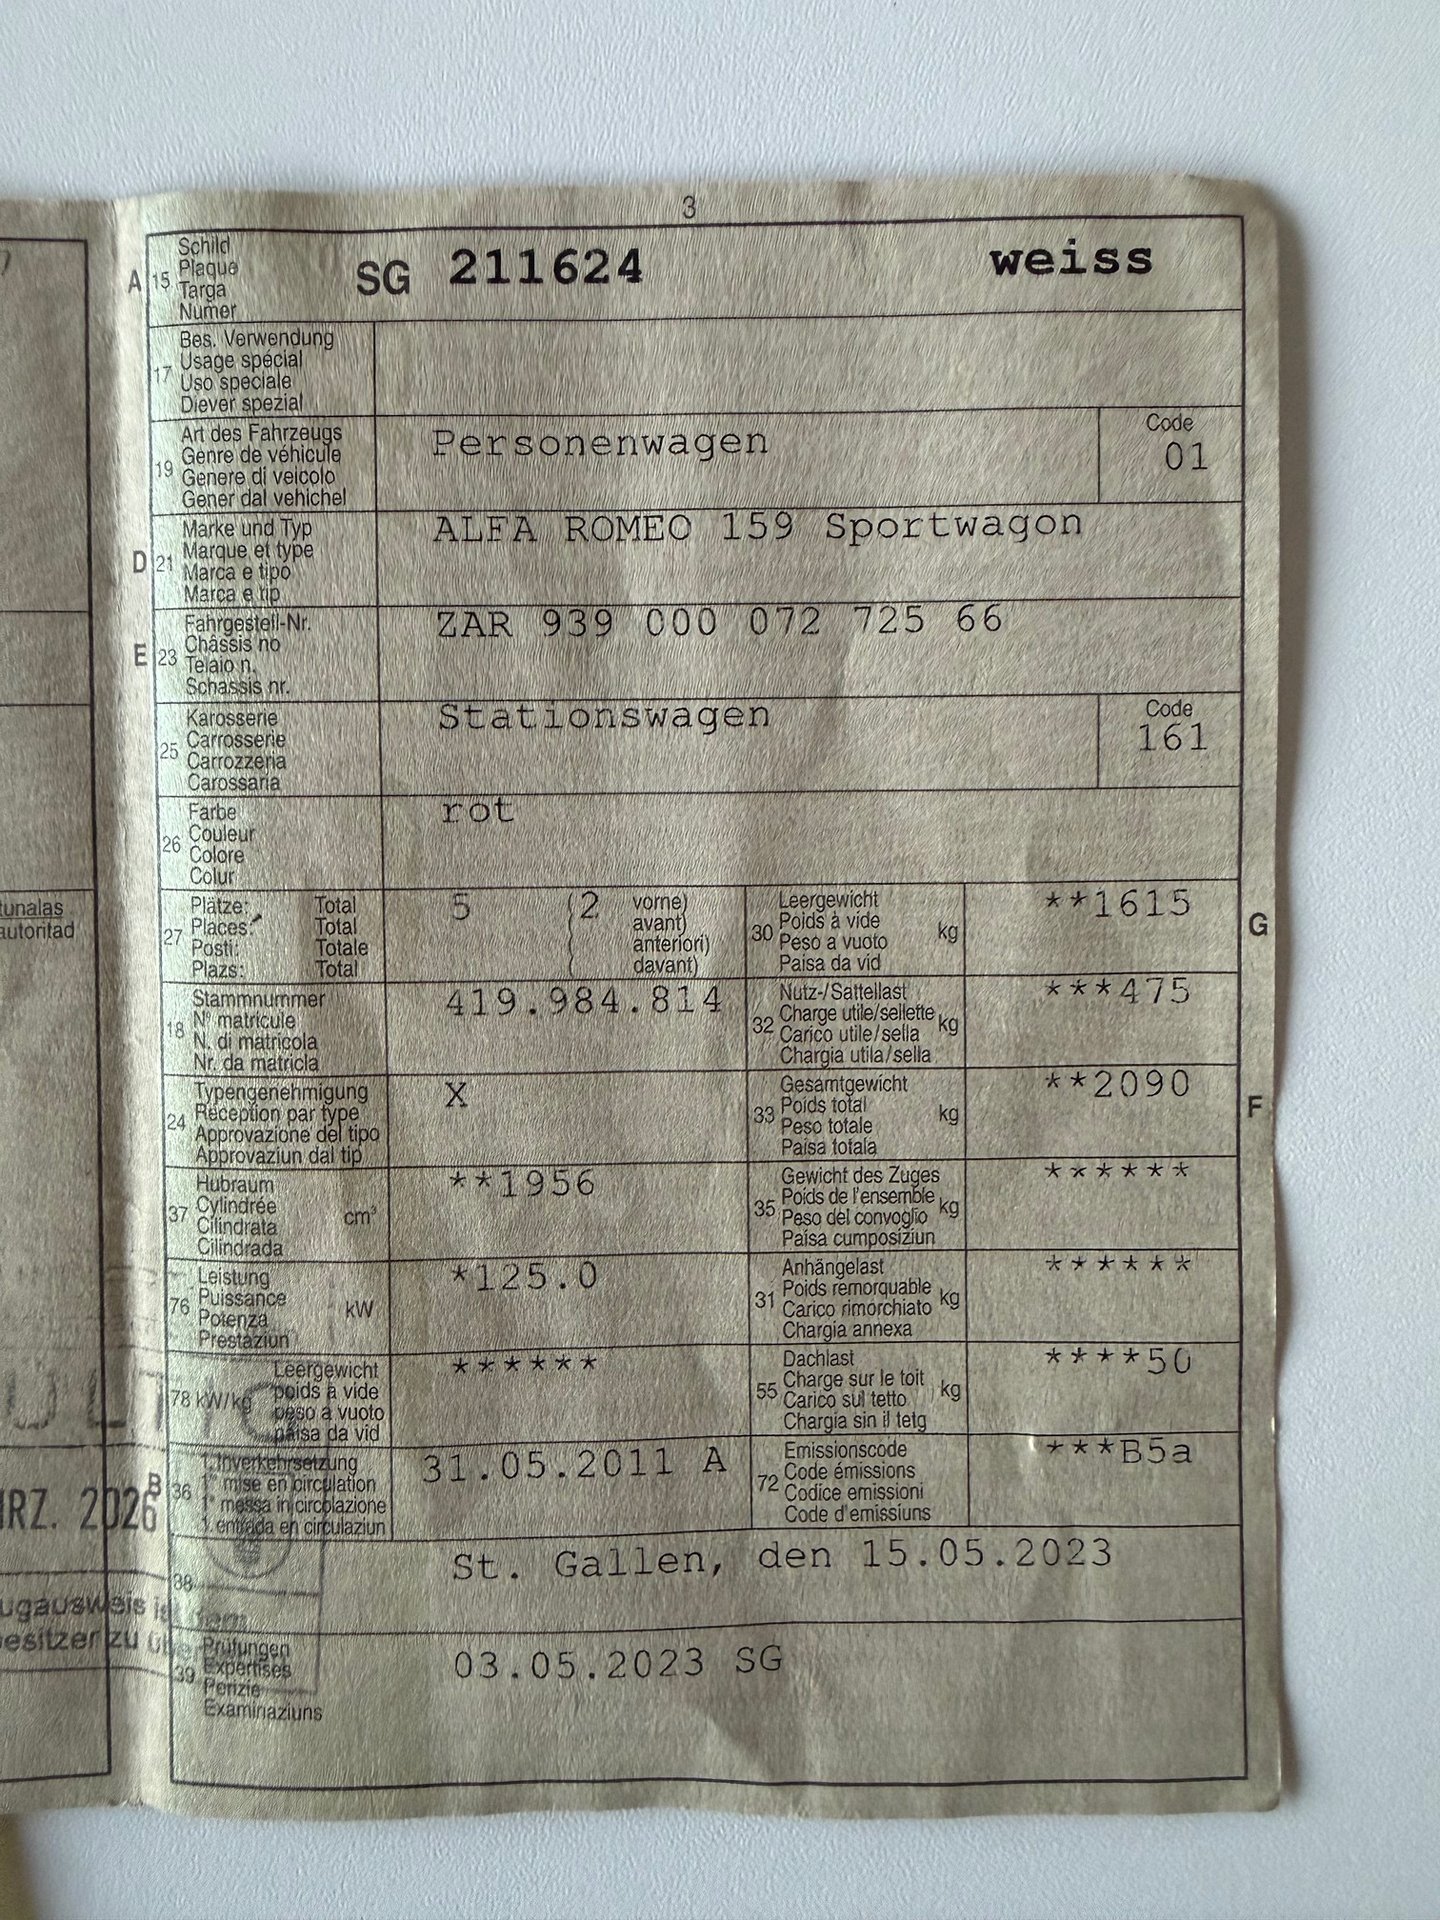 3
A 15 Schild Plaque Targa Numer SG 211624 weiss
17 Bes. Verwendung
Usage spécial
Uso speciale
Diever spezial
19 Art des Fahrzeugs
Genre de véhicule
Genere di veicolo
Gener dal vehichel
Personenwagen
Code
01
D 21 Marke und Typ
Marque et type
Marca e tipo
Marca e tip
ALFA ROMEO 159 Sportwagon
E 23 Fahrgestell-Nr.
Châssis no
Telaio n.
Schassis nr.
ZAR 939 000 072 725 66
25 Karosserie
Carrosserie
Carrozzeria
Carossaria
Stationswagen
Code
161
26 Farbe
Couleur
Colore
Colur
rot
27 Plätze: Total
Places: Total
Posti: Totale
Plazs: Total
5 (2 vorne)
( avant)
( anteriori)
( davant)
30 Leergewicht
Poids à vide
Peso a vuoto
Paisa da vid
kg
**1615
G
18 Stammnummer
N° matricule
N. di matricola
Nr. da matricla
419.984.814
32 Nutz-/Sattellast
Charge utile/sellette
Carico utile/sella
Chargia utila/sella
kg
***475
24 Typengenehmigung
Réception par type
Approvazione del tipo
Approvaziun dal tip
X
33 Gesamtgewicht
Poids total
Peso totale
Paisa totala
kg
**2090
F
37 Hubraum
Cylindrée
Cilindrata
Cilindrada
cm³
**1956
35 Gewicht des Zuges
Poids de l'ensemble
Peso del convoglio
Paisa cumposiziun
kg
******
76 Leistung
Puissance
Potenza
Prestaziun
kW
*125.0
31 Anhängelast
Poids remorquable
Carico rimorchiato
Chargia annexa
kg
******
78 kW/kg Leergewicht
poids à vide
peso a vuoto
paisa da vid
******
55 Dachlast
Charge sur le toit
Carico sul tetto
Chargia sin il tetg
kg
****50
B 36 1. Inverkehrsetzung
1° mise en circulation
1° messa in circolazione
1. entrada en circulaziun
31.05.2011 A
72 Emissionscode
Code émissions
Codice emissioni
Code d'emissiuns
***B5a
38 St. Gallen, den 15.05.2023
39 Prüfungen
Expertises
Perizie
Examinaziuns
03.05.2023 SG
tunalas
autoritad
RZ. 2026
ugausweis
esitzer zu